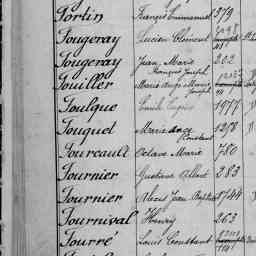 Fortin François Emmanuel 379
Fougeray Lucien Clément
Fougeray Jean, Marie 202
François Joseph
Fouiller Marie Ange Marie
Joseph
Foulque Emile Eugène 1977
Fouquet Marie Ange 1278
Constant
Fourcault Octave Marie 780
Fournier Gustave Albert 283
Fournier Alexis Jean Baptiste 1744
Fournival Henry 263
Fourré Louis Constant